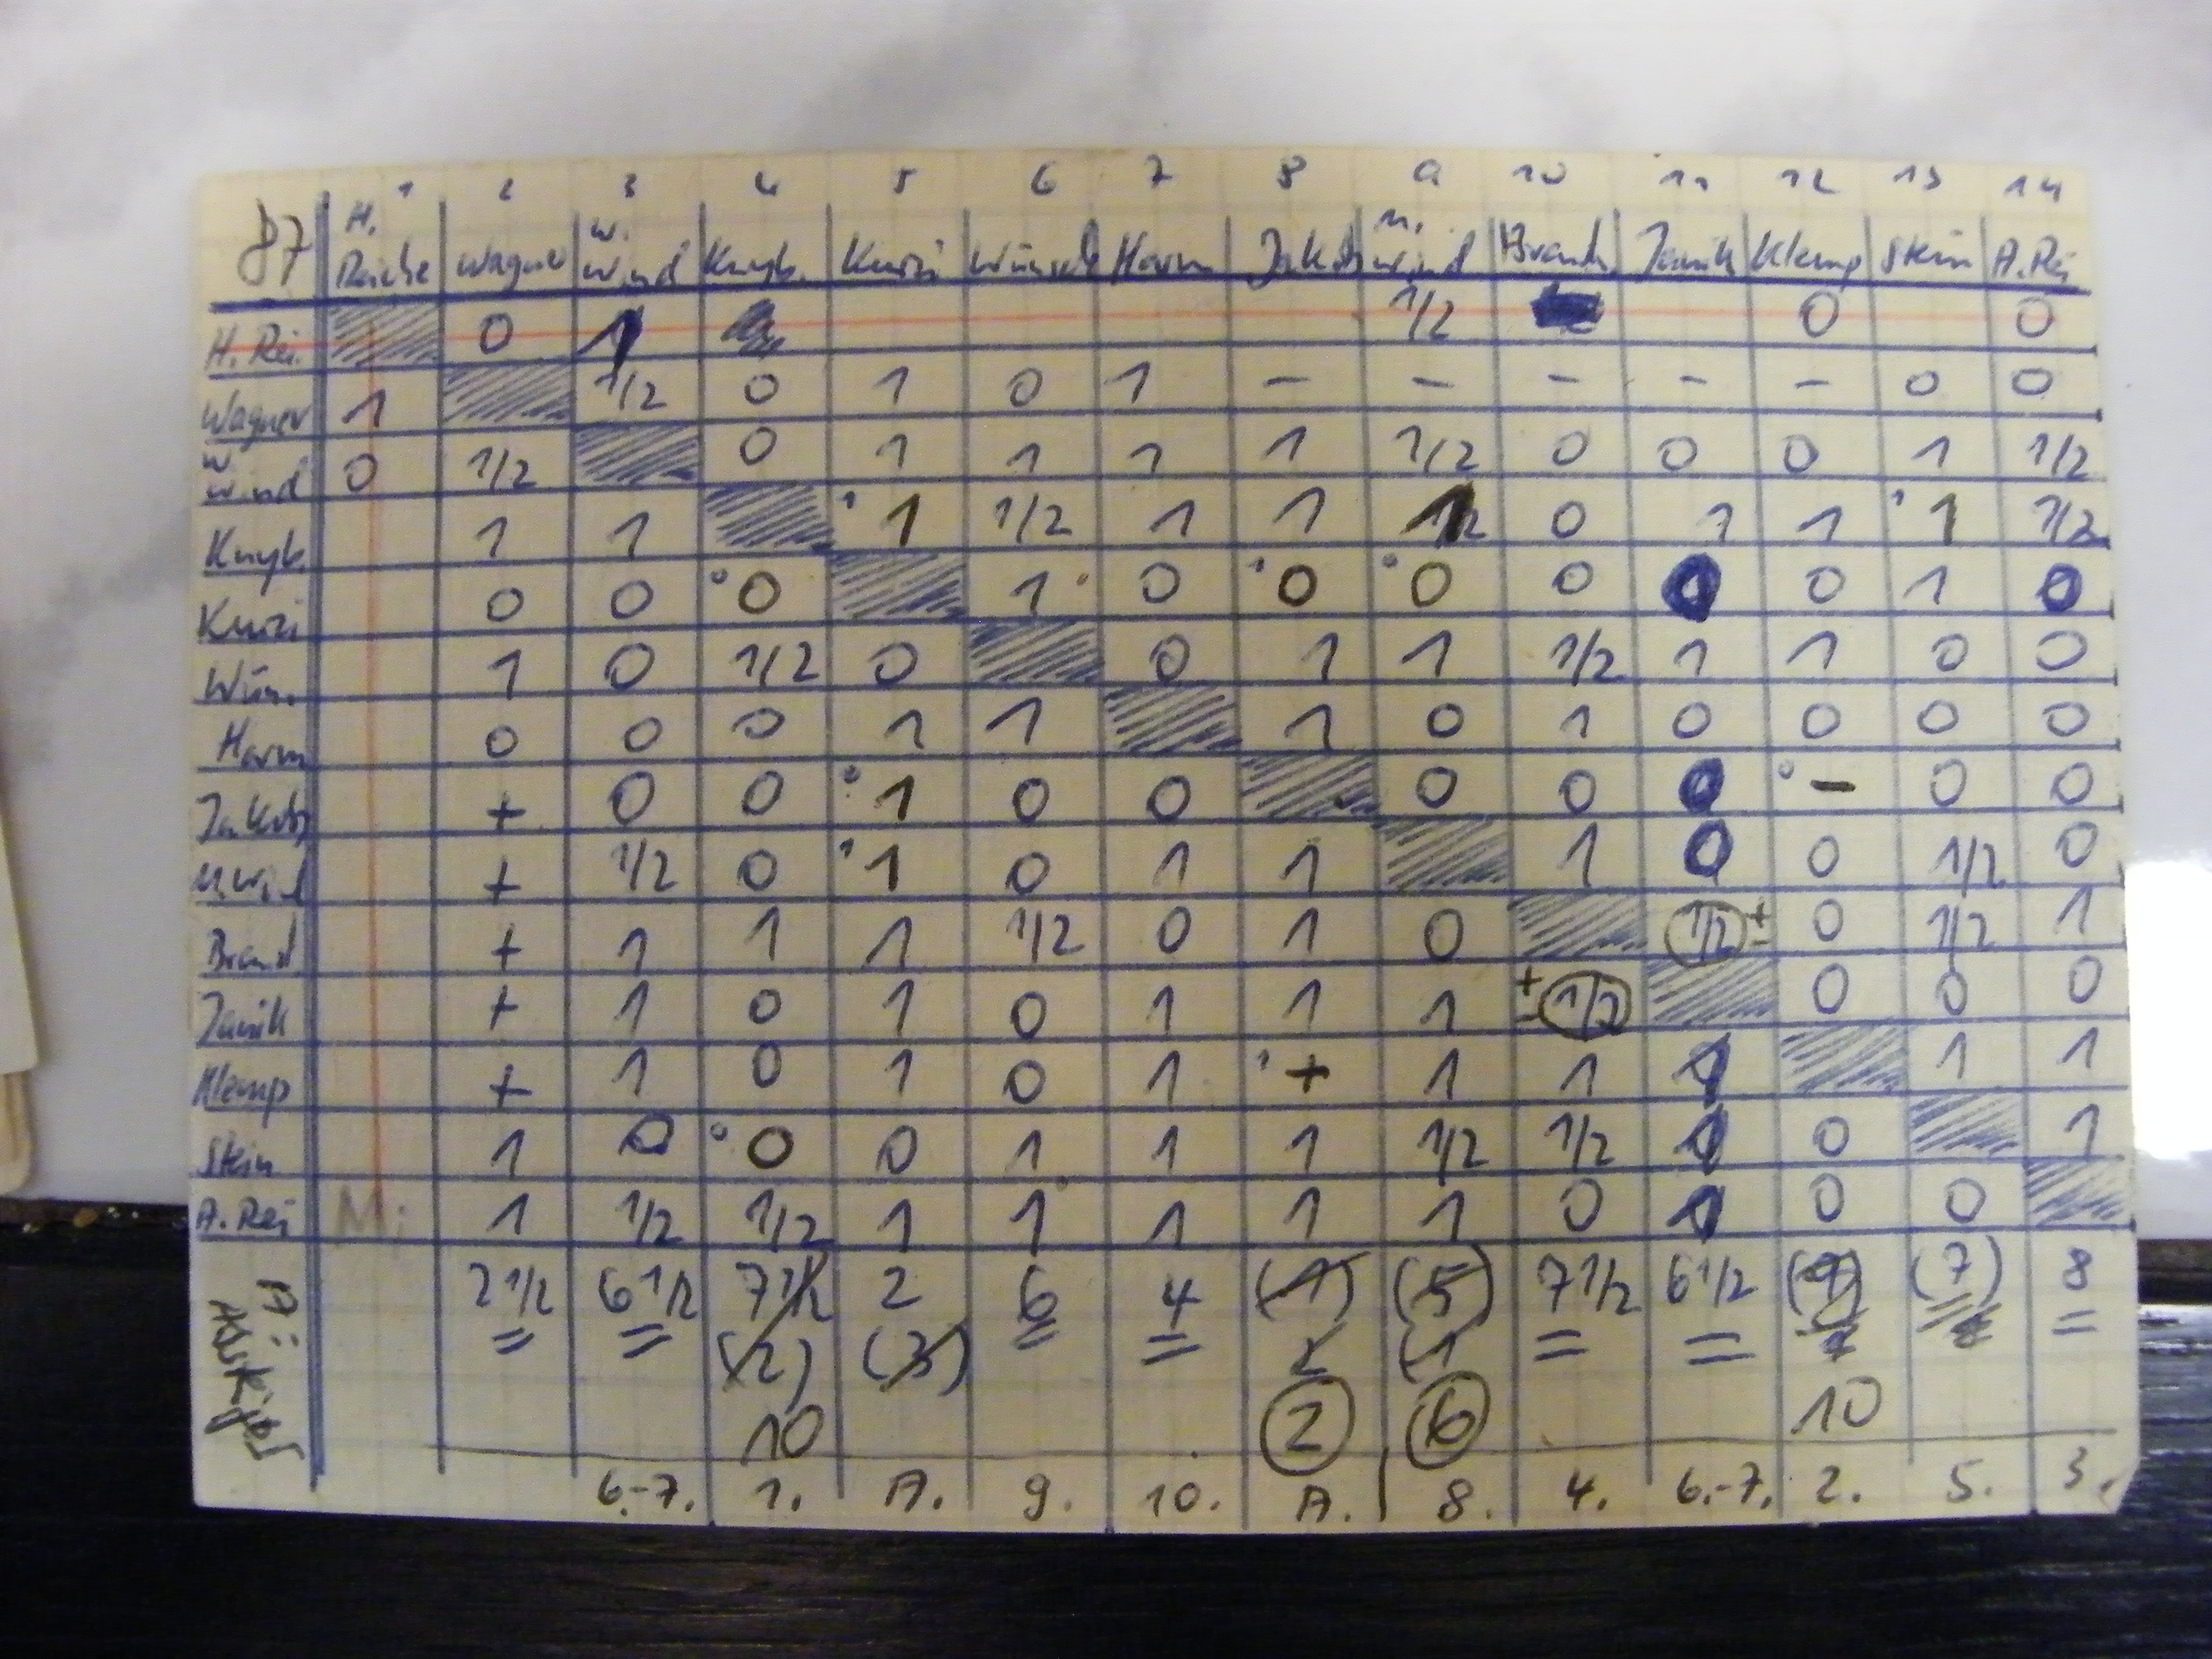 1 2 3 4 5 6 7 8 9 10 11 12 13 14
87 H. Reiche Wagner W. Wind Knyb. Kurzi Wünsch Harm Jakob M. Wind Brand Janik Klemp Stein A. Rei
H. Rei. 0 1 1/2 0 0
Wagner 1 1/2 0 1 0 1 – – – – – 0 0
W. Wind 0 1/2 0 1 1 1 1 1/2 0 0 0 1 1/2
Knyb. 1 1 1 1 1/2 1 1 1 0 1 1 1 1 1/2
Kurzi 0 0 0 0 1 0 0 0 0 0 0 0 0 1 0
Wün. 1 0 1/2 0 0 1 1 1/2 1 1 0 0
Harm 0 0 0 1 1 1 0 1 0 0 0 0
Jakob + 0 0 0 1 0 0 0 0 0 0 – 0 0
M. Wind + 1/2 0 1 1 0 1 1 1 0 0 1/2 0
Brand + 1 1 1 1/2 0 1 0 1/2 ± 0 1/2 1
Janik + 1 0 1 0 1 1 1 ± 1/2 0 0 0
Klemp + 1 0 1 0 1 1 + 1 1 1 1
Stein 1 0 0 0 0 1 1 1 1/2 1/2 0 1
A. Rei M: 1 1/2 1/2 1 1 1 1 1 0 1 0 0
A: 2 1/2 6 1/2 7 1/2 2 6 4 (1) (5) 7 1/2 6 1/2 (9) (7) 8
(2) (3) 2 (1
10 2 6 10
6.-7. 1. A. 9. 10. A. 8. 4. 6.-7. 2. 5. 3.